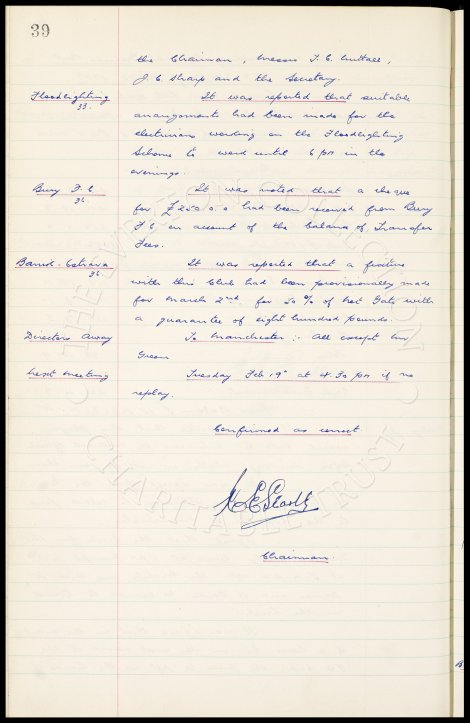 39
the Chairman, Messrs T. C. Nuttall,
J C Sharp and the Secretary.
Floodlighting It was reported that suitable
33. arrangements had been made for the
electricians working on the Floodlighting
Scheme to work until 6 pm in the
evenings.
Bury F. C It was noted that a cheque
36 for £250.0.0 had been received from Bury
F C on account of the balance of Transfer
Fees.
Banik-Ostrava It was reported that a fixture
36. with this Club had been provisionally made
for March 2nd for 50% of net Gate with
a guarantee of eight hundred pounds.
Directors Away To Manchester :- All except Mr
Green
Next meeting Tuesday Feb 19th at 4.30 pm if no
replay.
Confirmed as correct
Chairman.
THE EVERTON COLLECTION
CHARITABLE TRUST